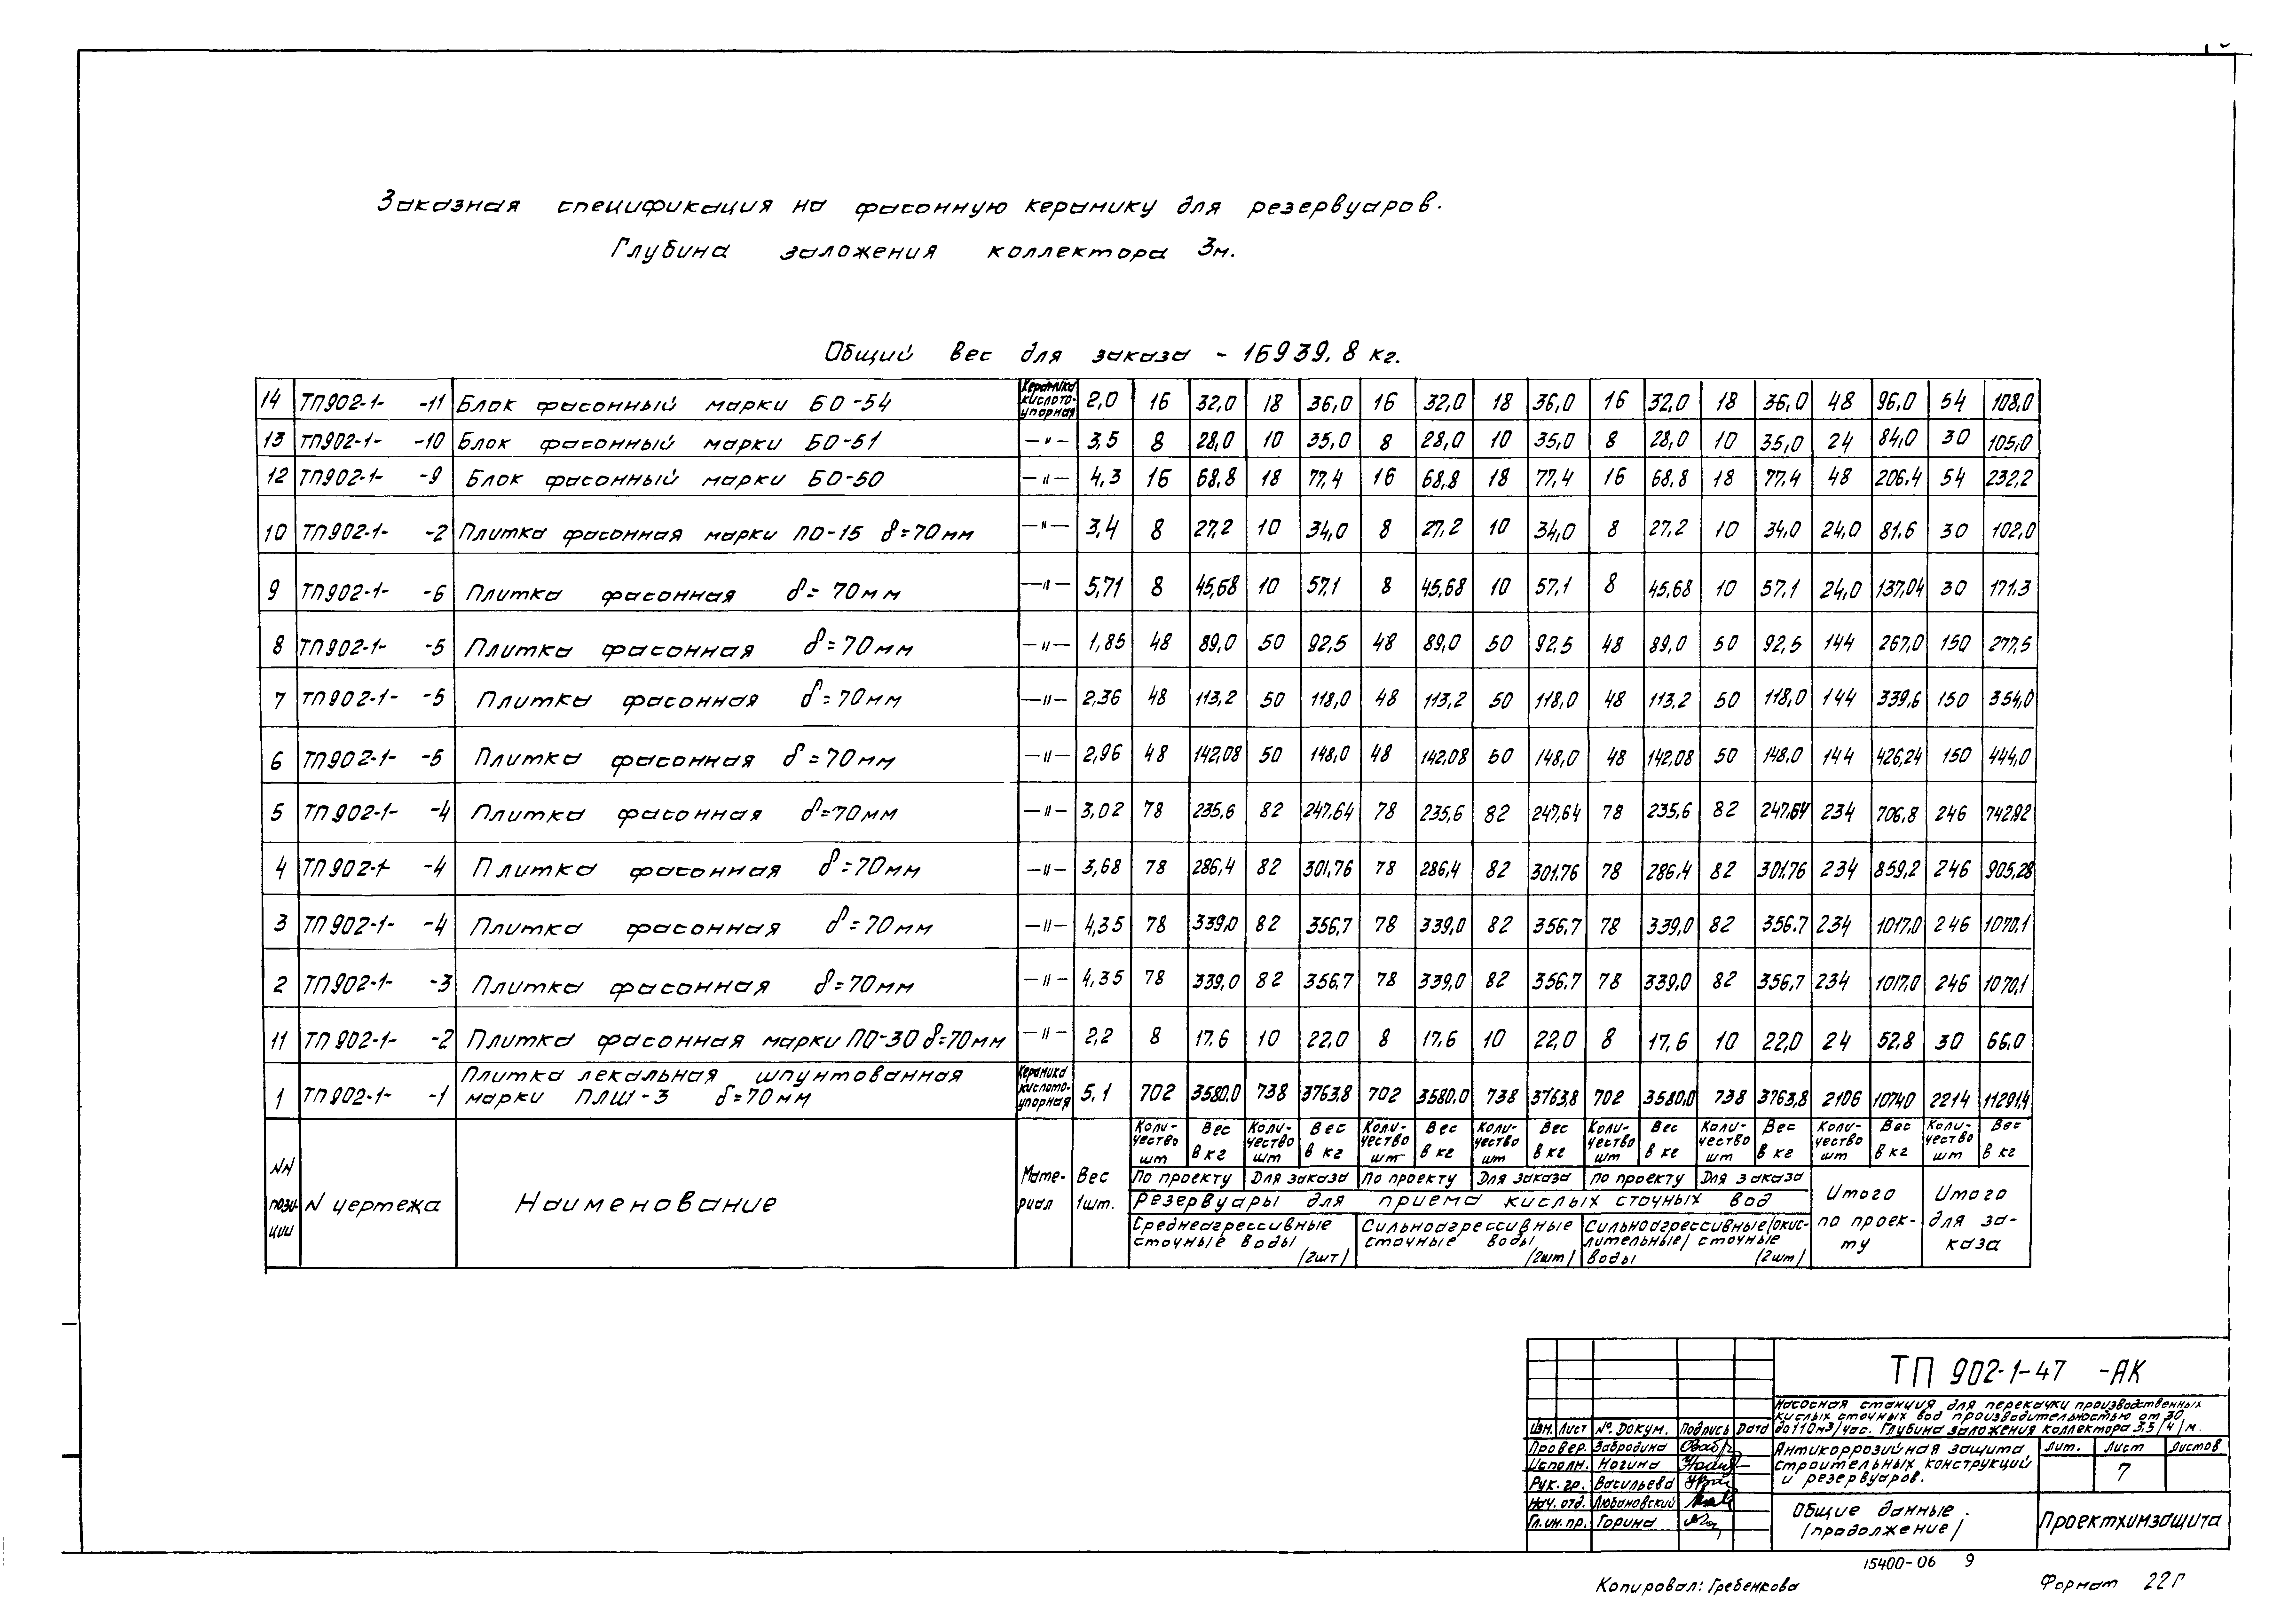 Заказная спецификация на фасонную керамику для резервуаров.
Глубина заложения коллектора 3м.
Общий вес для заказа - 16939,8 кг.
14 ТП902-1- -11 Блок фасонный марки БО-54 Керамика кислото-упорная 2,0 16 32,0 18 36,0 16 32,0 18 36,0 16 32,0 18 36,0 48 96,0 54 108,0
13 ТП902-1- -10 Блок фасонный марки БО-51 —"— 3,5 8 28,0 10 35,0 8 28,0 10 35,0 8 28,0 10 35,0 24 84,0 30 105,0
12 ТП902-1- -9 Блок фасонный марки БО-50 —"— 4,3 16 68,8 18 77,4 16 68,8 18 77,4 16 68,8 18 77,4 48 206,4 54 232,2
10 ТП902-1- -2 Плитка фасонная марки ПО-15 δ=70мм —"— 3,4 8 27,2 10 34,0 8 27,2 10 34,0 8 27,2 10 34,0 24,0 81,6 30 102,0
9 ТП902-1- -6 Плитка фасонная δ=70мм —"— 5,71 8 45,68 10 57,1 8 45,68 10 57,1 8 45,68 10 57,1 24,0 137,04 30 171,3
8 ТП902-1- -5 Плитка фасонная δ=70мм —"— 1,85 48 89,0 50 92,5 48 89,0 50 92,5 48 89,0 50 92,5 144 267,0 150 277,5
7 ТП902-1- -5 Плитка фасонная δ=70мм —"— 2,36 48 113,2 50 118,0 48 113,2 50 118,0 48 113,2 50 118,0 144 339,6 150 354,0
6 ТП902-1- -5 Плитка фасонная δ=70мм —"— 2,96 48 142,08 50 148,0 48 142,08 50 148,0 48 142,08 50 148,0 144 426,24 150 444,0
5 ТП902-1- -4 Плитка фасонная δ=70мм —"— 3,02 78 235,6 82 247,64 78 235,6 82 247,64 78 235,6 82 247,64 234 706,8 246 742,92
4 ТП902-1- -4 Плитка фасонная δ=70мм —"— 3,68 78 286,4 82 301,76 78 286,4 82 301,76 78 286,4 82 301,76 234 859,2 246 905,28
3 ТП902-1- -4 Плитка фасонная δ=70мм —"— 4,35 78 339,0 82 356,7 78 339,0 82 356,7 78 339,0 82 356,7 234 1017,0 246 1070,1
2 ТП902-1- -3 Плитка фасонная δ=70мм —"— 4,35 78 339,0 82 356,7 78 339,0 82 356,7 78 339,0 82 356,7 234 1017,0 246 1070,1
11 ТП902-1- -2 Плитка фасонная марки ПО-30 δ=70мм —"— 2,2 8 17,6 10 22,0 8 17,6 10 22,0 8 17,6 10 22,0 24 52,8 30 66,0
Плитка лекальная шпунтованная
1 ТП902-1- -1 марки ПЛШ-3 δ=70мм Керамика кислото-упорная 5,1 702 3580,0 738 3763,8 702 3580,0 738 3763,8 702 3580,0 738 3763,8 2106 10740 2214 11291,4
NN позиции
N чертежа
Наименование
Материал
Вес 1шт.
Количество шт Вес в кг Количество шт Вес в кг Количество шт Вес в кг Количество шт Вес в кг Количество шт Вес в кг Количество шт Вес в кг Количество шт Вес в кг Количество шт Вес в кг
По проекту Для заказа По проекту Для заказа По проекту Для заказа
Резервуары для приема кислых сточных вод
Среднеагрессивные сточные воды /2шт/
Сильноагрессивные сточные воды /2шт/
Сильноагрессивные/окислительные/ сточные воды /2шт/
Итого по проекту
Итого для заказа
ТП 902-1-47 -АК
Насосная станция для перекачки производственных
кислых сточных вод производительностью от 30
до 110м3/час. Глубина заложения коллектора 3,5/4/м.
Изм. Лист №. Докум. Подпись Дата
Провер. Забродина
Исполн. Ногина
Рук. гр. Васильева
Нач. отд. Любановский
Гл.ин.пр. Горина
Антикоррозийная защита
строительных конструкций
и резервуаров.
Лит. Лист Листов
7
Общие данные.
/продолжение/
Проектхимзащита
15400-06 9
Копировал: Гребенкова
Формат 22Г